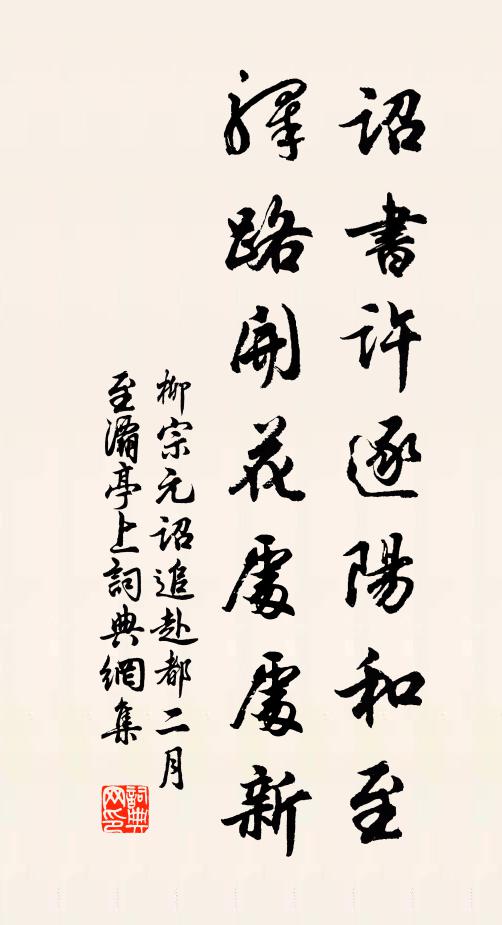 詔書許逐陽和至
驛路開花處處新
柳宗元詔追赴都二月
至灞亭上詞典網集
詞典网印